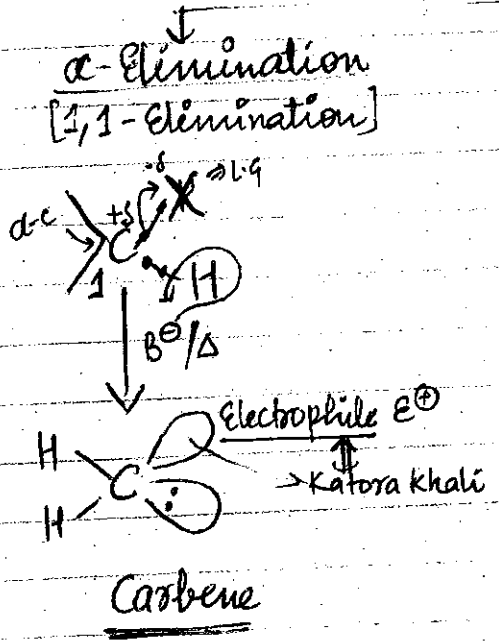 α-Elimination
[1,1-Elimination]
-δ
X ⇒ L.G
α-C
+δ
C
1
H
B⊖/Δ
Electrophile E⊕
H
C
:
→ Katora Khali
H
Carbene